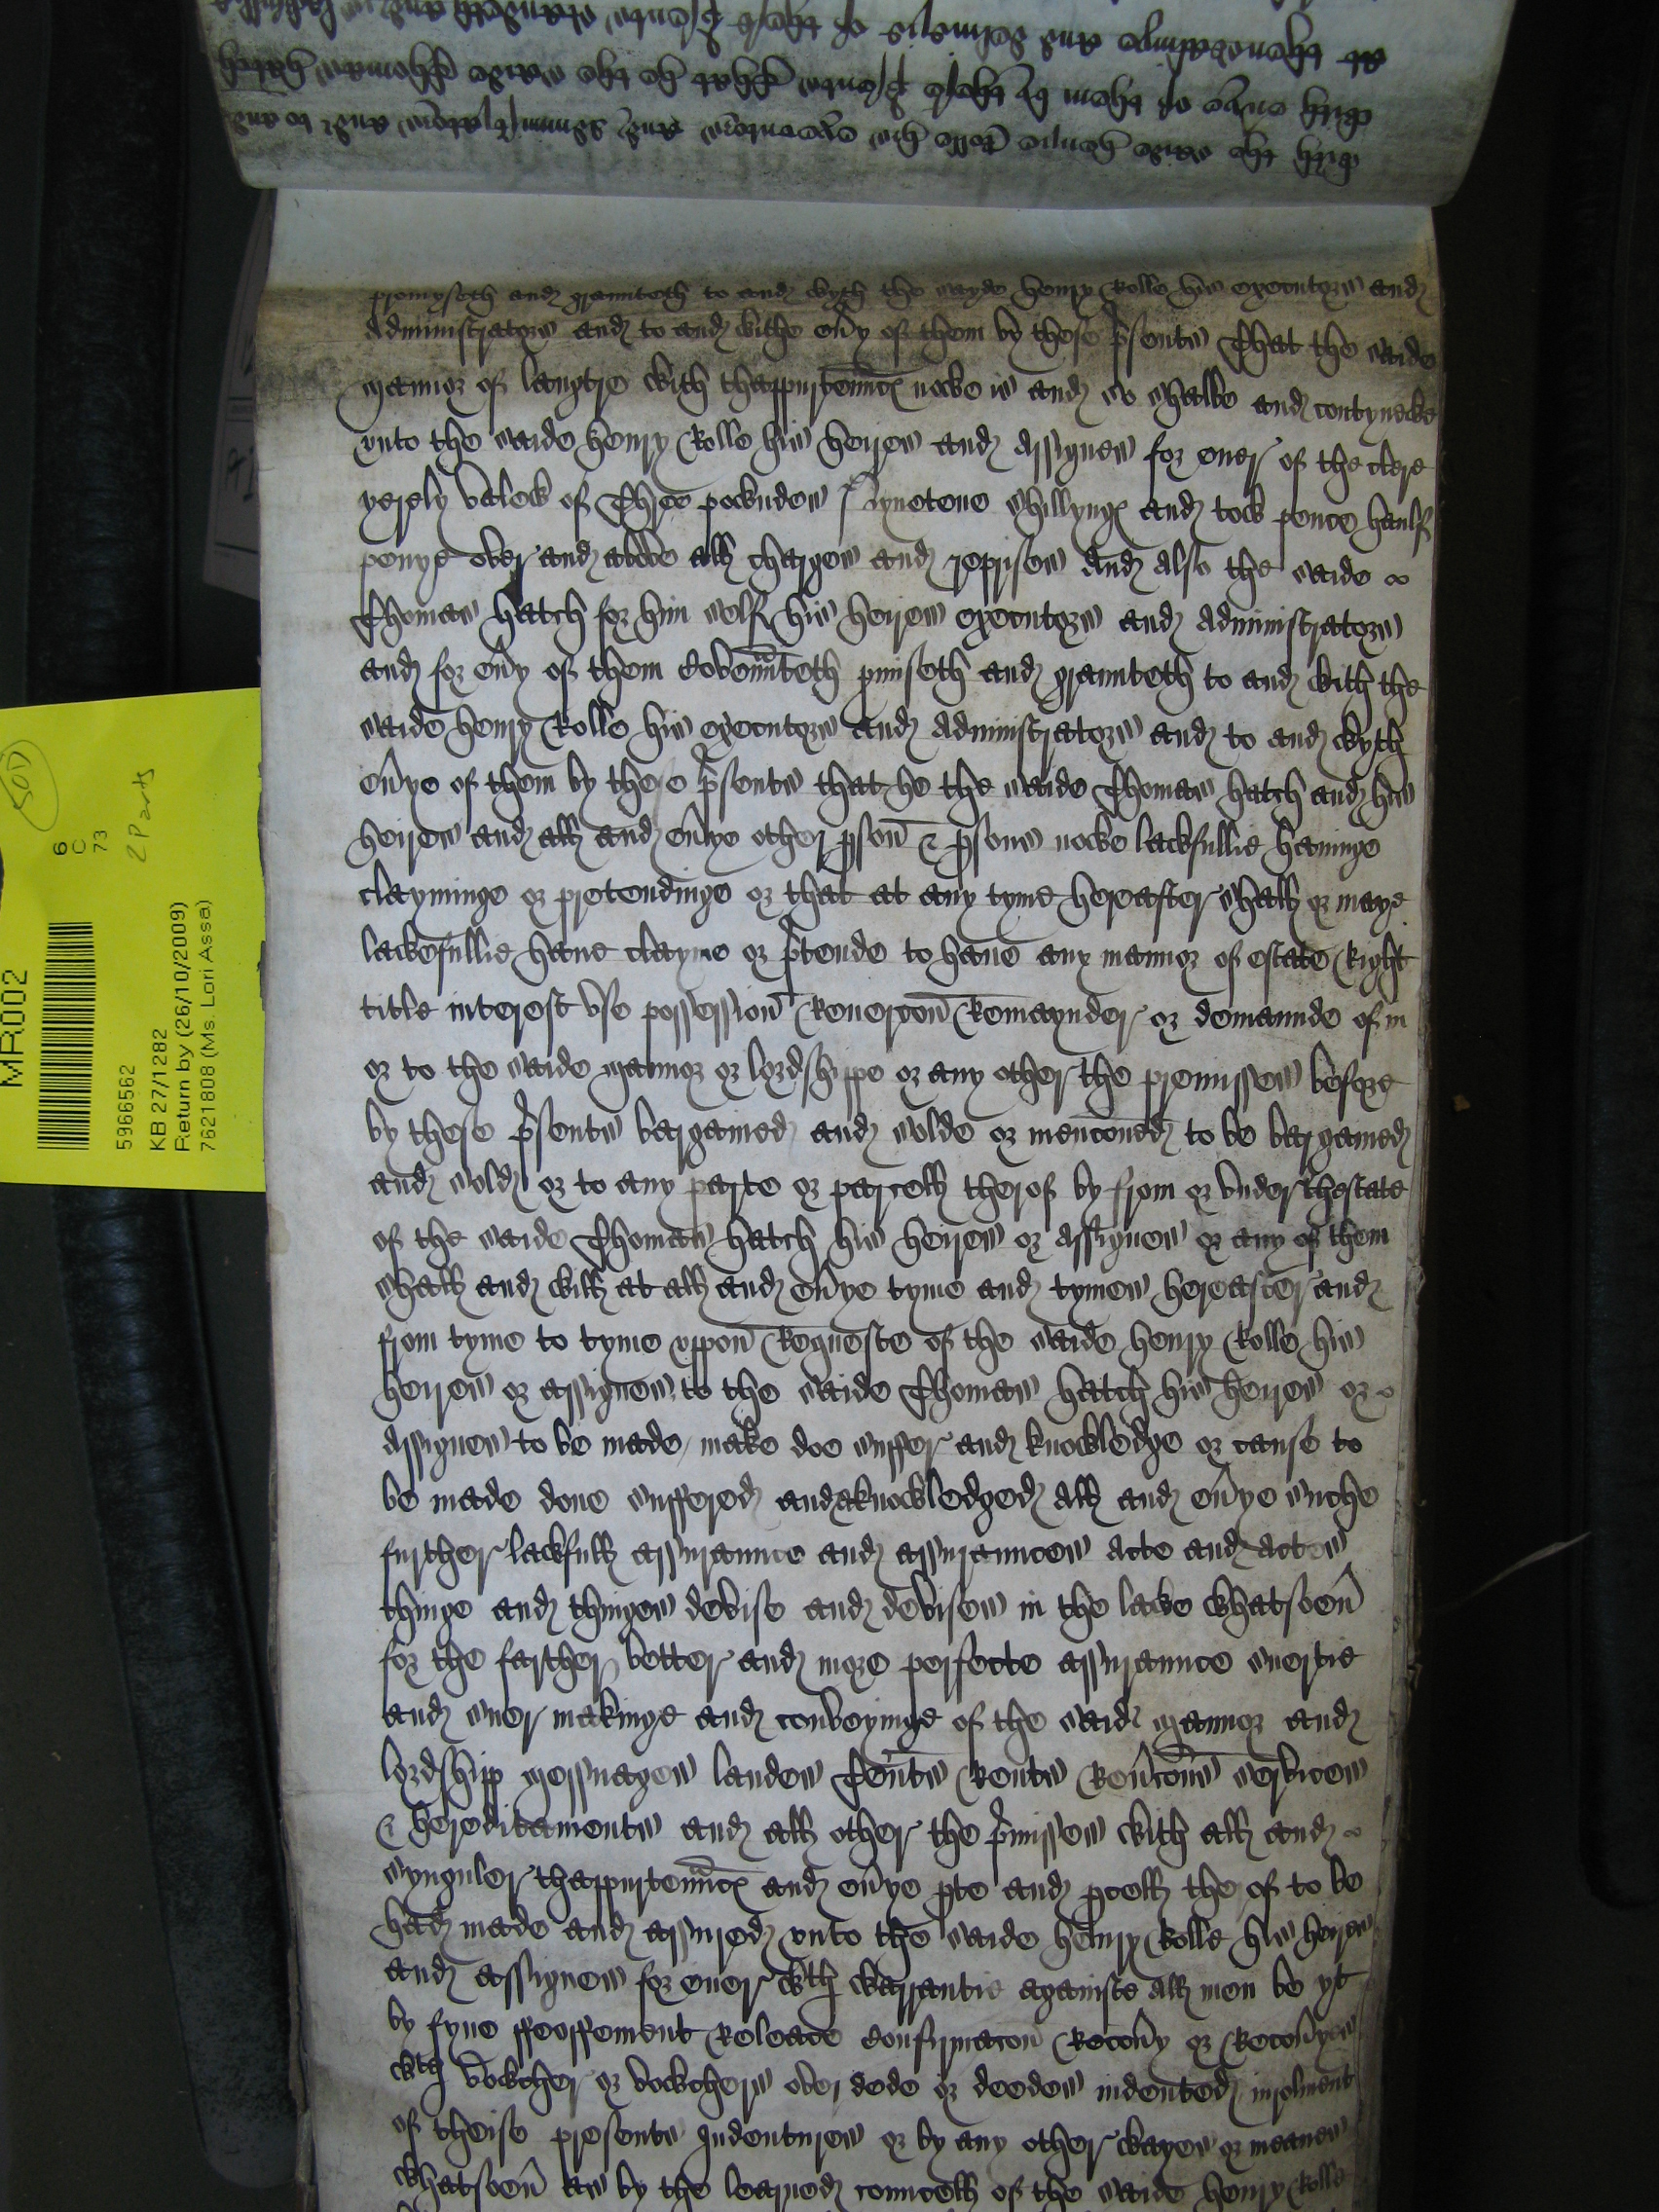 at thensealinge and delyverye of theys presents
with every of them by theys presents that he the saide Thomas Hatch
with the saide Henrie Rolle his executors and admynistrators and to and
promyseth and graunteth to and wyth the sayde Henry Rolle his executors and
Administrators and to and withe eũy of them by these p̃sents That the saide
Mannor of langtre with thappurteñncs nowe is and so shalbe and contynewe
vnto the saide Henry Rolle his heires and Assignes for euer of the clere
yerely valew of Three powndes Nynetene shillyngs and tow pence haulf
penye over and above all charges and reprises And also the saide
Thomas Hatch for him self his heires executors and Administrators
and for eũy of them Coveñnteth pmiseth and graunteth to and with the
saide Henry Rolle his executors and Administrators and to and wyth
eũye of them by these p̃sents that he the saide Thomas Hatch and his
heires and all and eũye other pson & psons nowe lawfullie havinge
clayminge or pretendinge or that at any tyme hereafter shall or maye
lawefullie have clayme or p̃tende to have any mannor of estate Right
title interest vse possession Revercon Remaynder or demaunde of in
or to the saide Mannor or lordshippe or any other the premisses before
by these p̃sents bargained and solde or menconed to be bargained
and sold or to any parte or parcell therof by from or vnder thestate
of the saide Thomas Hatch his heires or Assignes or any of them
shall and will at all and eũye tyme and tymes hereafter and
from tyme to tyme vppon Requeste of the saide Henry Rolle his
heires or assignes to the saide Thomas Hatch his heires or
Assignes to be made make doe suffer and knowledge or cause to
be made done suffered and aknowledged All and eũye suche
further lawfull assurannce and assurannces Acte and Actes
thinge and thinges devise and devises in the lawe whatsoeũ
for the farther better and more perfecte assurannce suertie
and suer makinge and conveyinge of the saide Mannor and
lordshipp Messuages landes Teñts Rents Reũcons services
& hereditaments and all other the p̃misses with all and
synguler thappurteñncs and eũye pte and pcell therof to be
had made and assured vnto the saide Henry Rolle his heires
and assignes for euer wth warrantie againste All men be yt
by fyne ffeoffement Release Confirmacon Recoũy or Recoũyes
wth vowcher or vowchers over dede or deedes indented inrolment
of theise presente Indentures or by any other wayes or meanes
whatsoeũ as by the learned councell of the saide Henry Rolle
MR002
5966562
KB 27/1282
Return by (26/10/2009)
7621808 (Ms. Lori Assa)
6
C
73
2 Parts